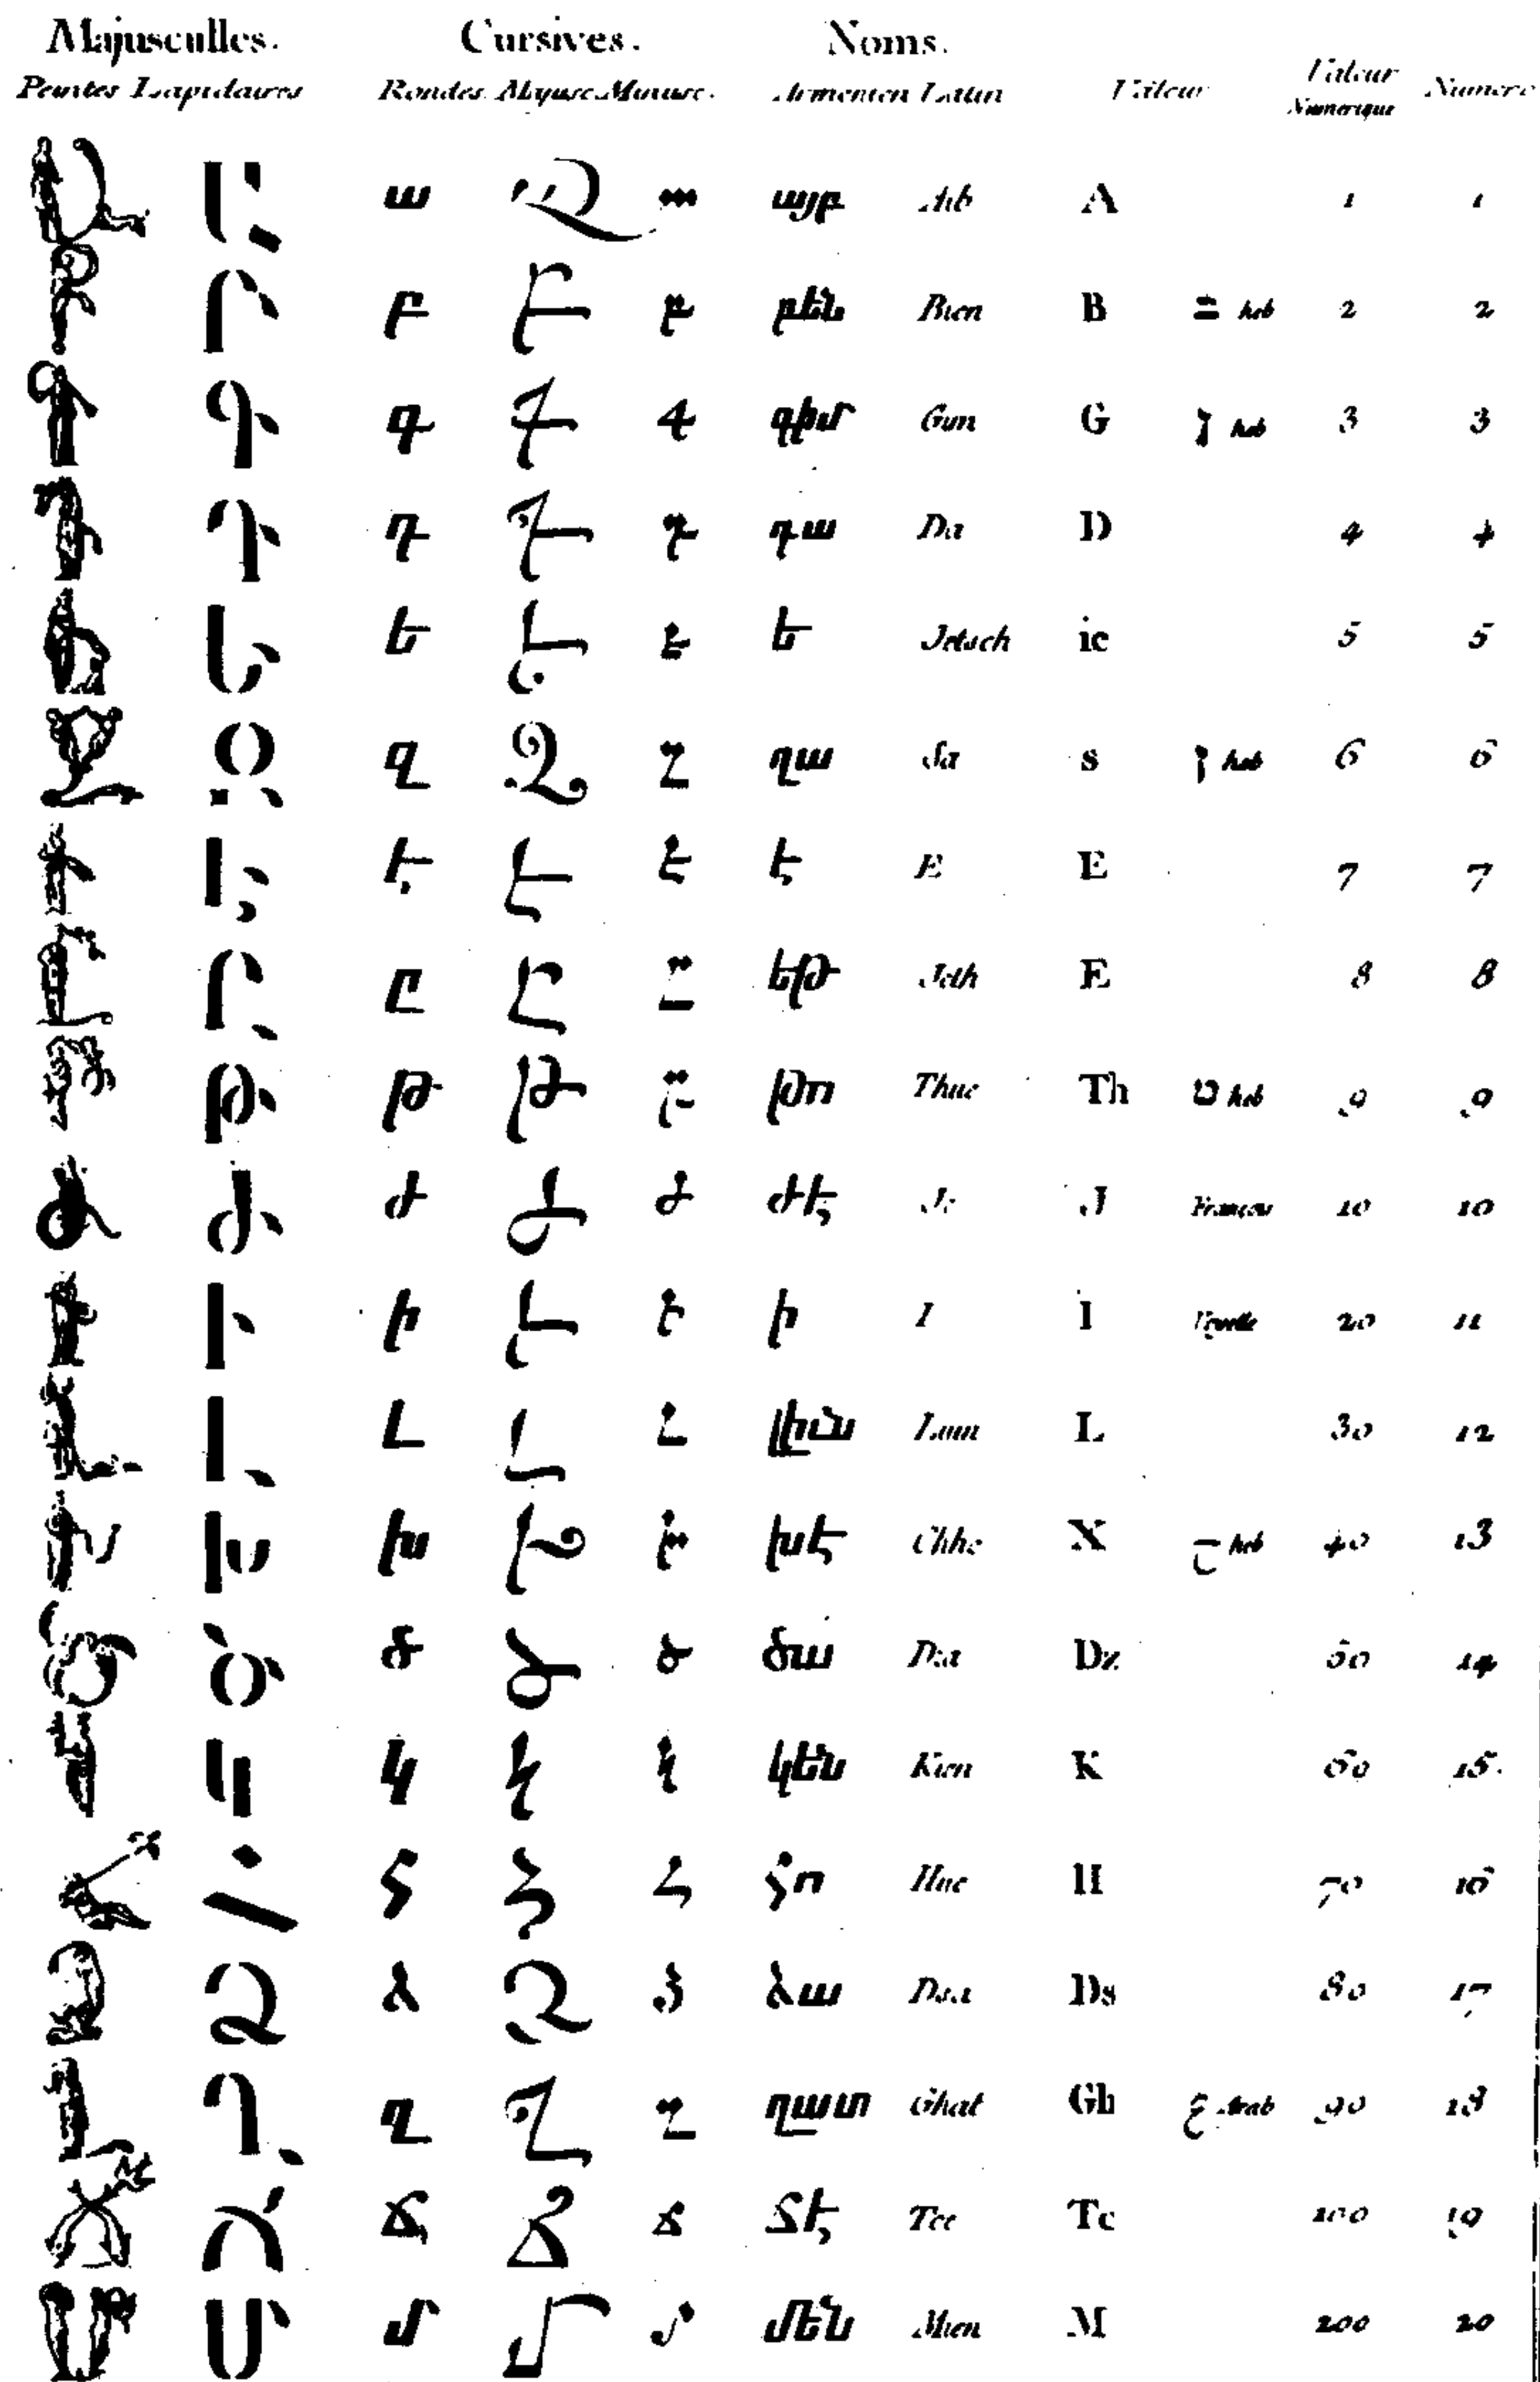 Majusculles. Cursives. Noms.
Peintes Lapidaires Rondes Majusc. Minusc. Armenien Latin Valeur Valeur Numerique Numero
Ա ա Ա ա այբ Aib A 1 1
Բ բ Բ բ բեն Bien B ב heb 2 2
Գ գ Գ գ գիմ Gim G ג heb 3 3
Դ դ Դ դ դա Da D 4 4
Ե ե Ե ե ե Jetsch ie 5 5
Զ զ Զ զ զա Sa s ז heb 6 6
Է է Է է է E E 7 7
Ը ը Ը ը եթ Jeth E 8 8
Թ թ Թ թ թո Thue Th ט heb 9 9
Ժ ժ Ժ ժ ժէ Je J Francois 10 10
Ի ի Ի ի ի I I Voyelle 20 11
Լ լ Լ լ լիւն Liun L 30 12
Խ խ Խ խ խէ Chhe X ח heb 40 13
Ծ ծ Ծ ծ ծա Dza Dz 50 14
Կ կ Կ կ կեն Kien K 60 15.
Հ հ Հ հ հո Hue H 70 16
Ձ ձ Ձ ձ ձա Dsa Ds 80 17
Ղ ղ Ղ ղ ղատ Ghat Gh غ Arab 90 18
Ճ ճ Ճ ճ ճէ Tce Tc 100 19
Մ մ Մ մ մեն Mien M 200 20